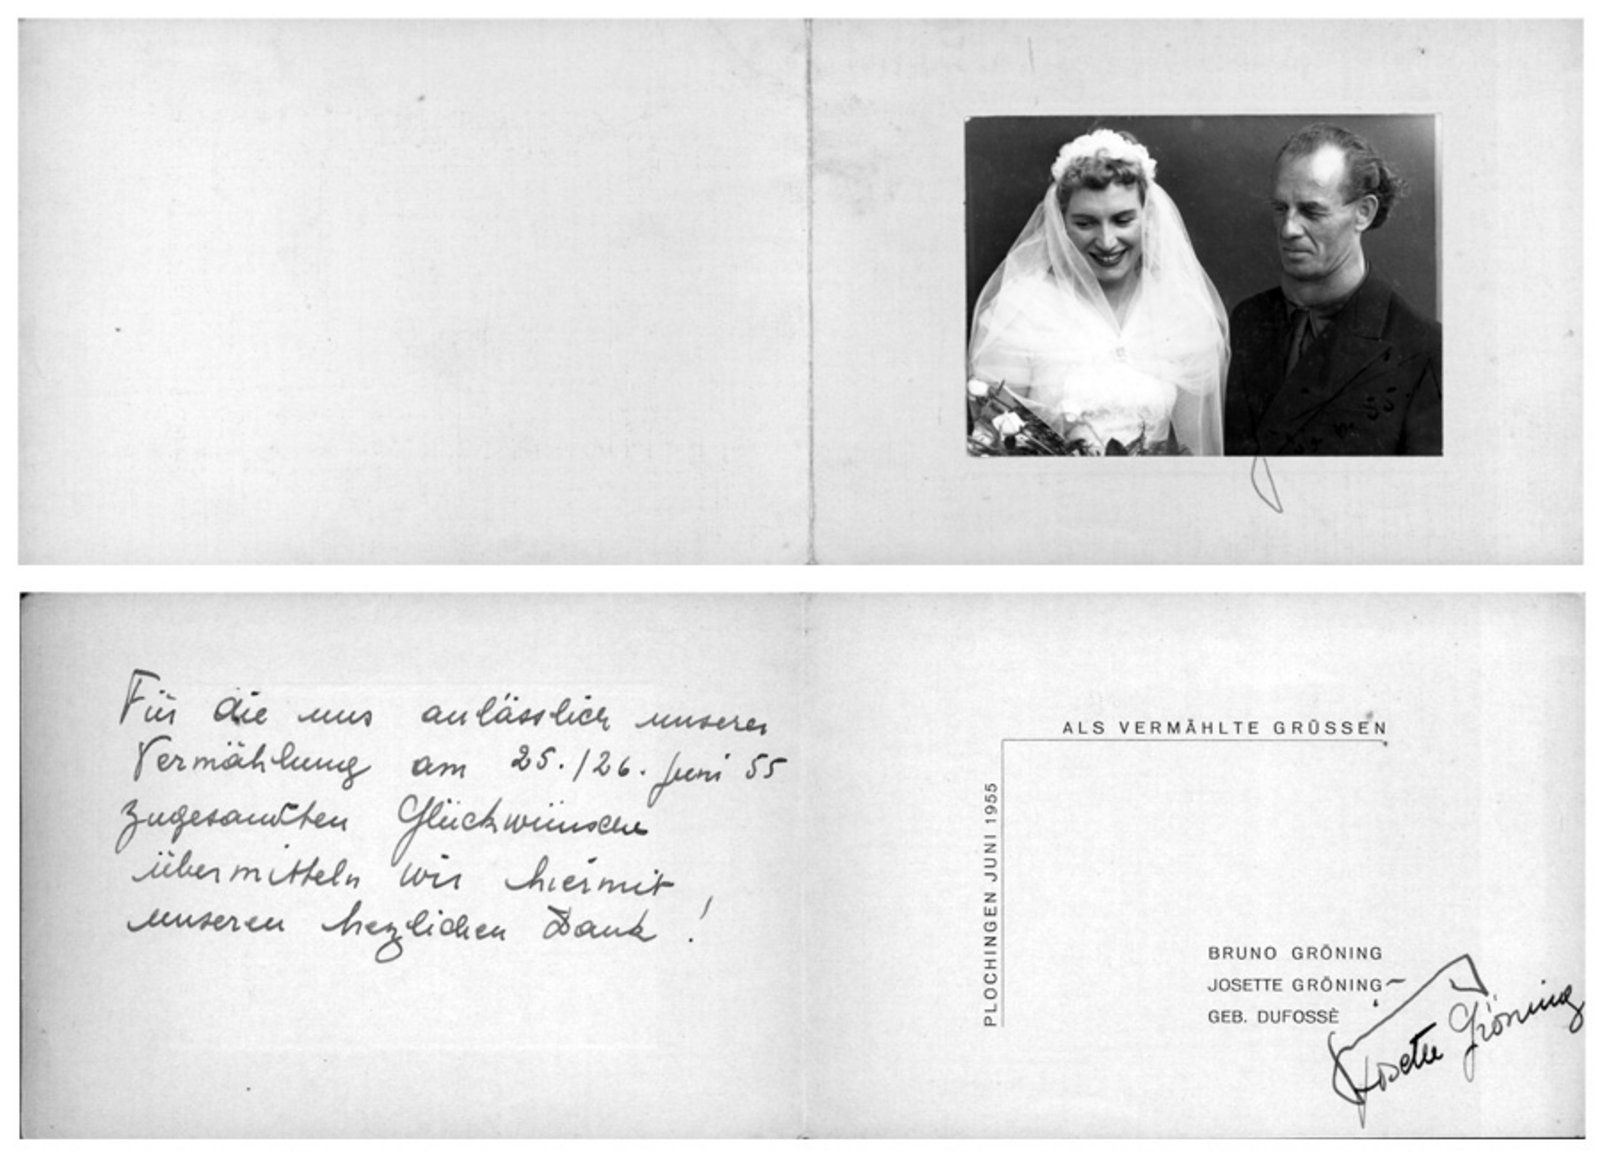 Für die uns anlässlich unserer
Vermählung am 25./26. Juni 55
zugesandten Glückwünsche
übermitteln wir hiermit
unseren herzlichen Dank!
ALS VERMÄHLTE GRÜSSEN
PLOCHINGEN JUNI 1955
BRUNO GRÖNING
JOSETTE GRÖNING
GEB. DUFOSSÈ
Josette Gröning